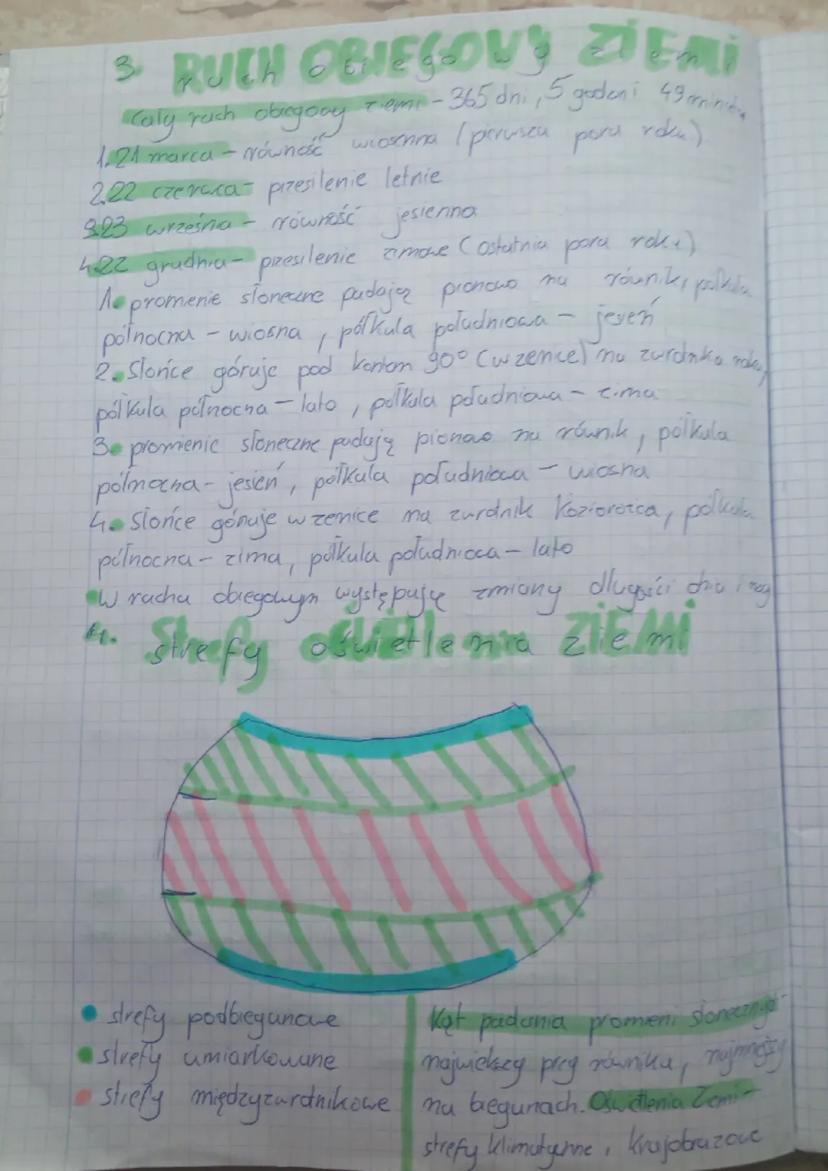 3. RUCH OBIEGOWY ZIEMI
Cały ruch obiegowy ziemi - 365 dni, 5 godzni 49 minut
1. 21 marca - równość wiosenna (pierwsza pora roku)
2. 22 czerwca - przesilenie letnie
3. 23 września - równość jesienna
4. 22 grudnia - przesilenie zimowe (ostatnia pora roku)
1. promienie słoneczne padają pionowo na równik, półkula
północna - wiosna, półkula południowa - jesień
2. Słońce góruje pod kontem 90° (w zenice) na zwrotniku raka,
półkula północna - lato, półkula południowa - zima
3. promienie słoneczne padają pionowo na równik, półkula
północna - jesień, półkula południowa - wiosna
4. Słońce góruje w zenice na zwrotnik koziorożca, półkula
północna - zima, półkula południowa - lato
W ruchu obiegowym występują zmiany długości dnia i nocy
4. Strefy oświetlenia ZIEMI
strefy podbiegunowe
strefy umiarkowane
strefy międzyzwrotnikowe
Kąt padania promieni słonecznych
największy przy równiku, najmniejszy
na biegunach. Oświetlenia Ziemi -
strefy klimatyczne, krajobrazowe